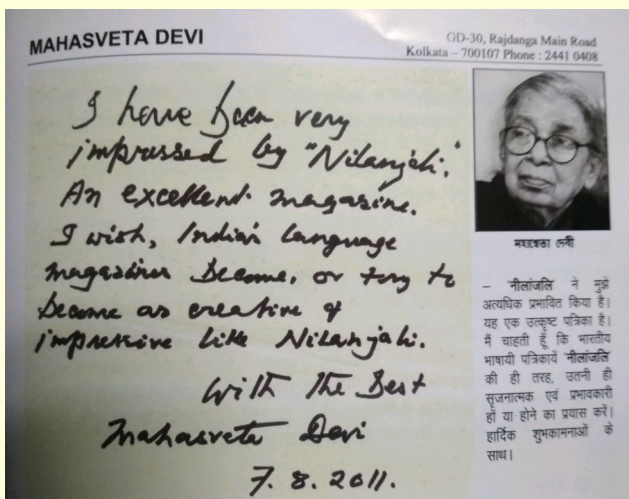 MAHASVETA DEVI
GD-30, Rajdanga Main Road
Kolkata – 700107 Phone : 2441 0408
I have been very
impressed by "Nilanjali."
An excellent magazine.
I wish, Indian language
magazines become, or try to
become as creative &
impressive like Nilanjali.
With the Best
Mahasveta Devi
7. 8. 2011.
মহাশ্বেতা দেবী
– 'नीलांजलि' ने मुझे
अत्यधिक प्रभावित किया है।
यह एक उत्कृष्ट पत्रिका है।
मैं चाहती हूँ कि भारतीय
भाषायी पत्रिकायें 'नीलांजलि'
की ही तरह, उतनी ही
सृजनात्मक एवं प्रभावकारी
हों या होने का प्रयास करें।
हार्दिक शुभकामनाओं के
साथ।